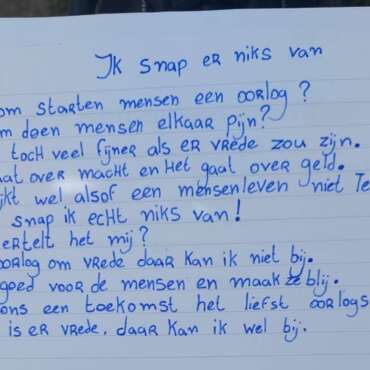 Ik snap er niks van
om starten mensen een oorlog?
m doen mensen elkaar pijn?
toch veel fijner als er vrede zou zijn.
aat over macht en het gaat over geld.
jkt wel alsof een mensenleven niet te
snap ik echt niks van!
ertelt het mij?
oorlog om vrede daar kan ik niet bij.
goed voor de mensen en maak ze blij.
ons een toekomst het liefst oorlogs
is er vrede, daar kan ik wel bij.